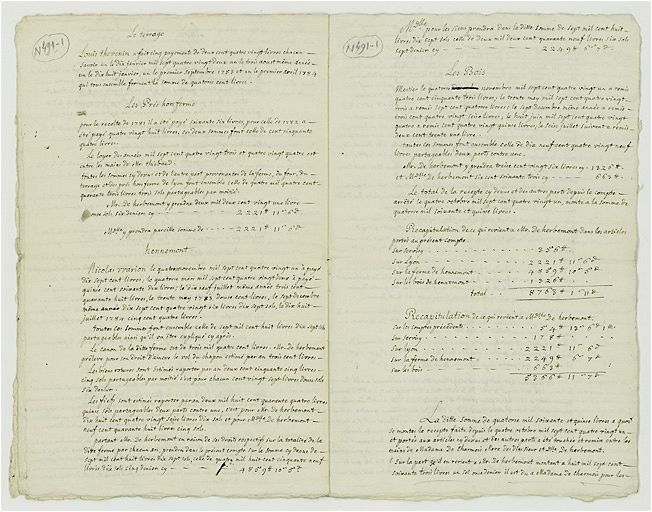 Le terrage
N491-1
Louis thevenin a fait cinq payement de deux cent quatre vingt livres chacun
savoir un le dix janvier mil sept cent quatre vingt deux un le trois aout même année
un le dix huit janvier, un le premier septembre 1783 et un le premier avril 1784
qui tous ensemble forment la somme de quatorze cent livres.
Les Prés hors ferme
pour la recolte de 1781 il a été payé soixante six livres, pour celle de 1782 a
été payé quatre vingt huit livres, ces deux sommes font celle de cent cinquante
quatre livres.
Le loyer des années mil sept cent quatre vingt trois et quatre vingt quatre est
entre les mains de Mr thibaud.
toutes les sommes cy dessus et de l'autre part provenantes de la ferme, du four, du
terrage et des prés hors ferme de lyon font ensemble celle de quatre mil quatre cent
quarante trois livres trois sols partageables par moitié
Mr. de herbemont y prendra deux mil deux cent vingt une livre
onze sols six deniers cy 2221# 11s 6d
Mdlle y prendra pareille somme de 2221# 11s 6d
hennemont
Nicolas warion le quatre novembre mil sept cent quatre vingt un a payé
dix sept cent livres, le quatorze mars mil sept cent quatre vingt deux a payé
quinze cent soixante dix livres; le dix neuf juillet même année trois cent
quarante huit livres, le trente may 1783 douze cent livres, le sept decembre
même année dix sept cent quatre vingt six livres dix sept sols, le dix huit
juillet 1784 cinq cent quatorze livres.
toutes ces sommes font ensemble celle de sept mil cent huit livres dix sept sols
partageables ainsi qu'il va être expliqué cy après.
Le canon de la dite ferme est de trois mil quatre cent livres. Mr. de herbemont
préleve pour son droit d'ainesse le vol du chapon estimé par an trois cent livres
Les biens roturs sont estimés raporter par an deux cent cinquante cinq livres
cinq sols partageables par moitié c'est pour chacun cent vingt sept livres douze sols
six deniers.
Les fiefs sont estimés raporter par an deux mil huit cent quarante quatre livres
quinze sols partageables deux parts contre une, c'est pour Mr. de herbemont
dix huit cent quatre vingt seize livres dix sols et pour Mdlle de herbemont
neuf cent quarante huit livres cinq sols.
partant Mr. de herbemont en raison de ses droits respectifs sur la totalité de la
dite ferme par chacun an, prendra dans le present compte sur la somme cy dessus de
sept mil cent huit livres dix sept sols, celle de quatre mil huit cent cinquante neuf
livres dix sols cinq deniers cy 4859# 10s 5d
N491-1
Mdlle pour les siens prendra dans la ditte somme de sept mil cent huit
livres dix sept sols celle de deux mil deux cent quarante neuf livres six sols
sept deniers cy 2249# 6s 7d
Les Bois
novembre mil sept cent quatre vingt un a remis
quatre cent cinquante trois livres; le trente may mil sept cent quatre vingt
trois a remis sept cent quatorze livres; le sept decembre même année a remis
trois cent quatre vingt seize livres, le huit juin mil sept cent quatre vingt
quatre a remis cent quatre vingt quinze livres; le seize juillet suivant a remis
deux cent trente une livre.
toutes ces sommes font ensemble celle de dix neuf cent quatre vingt neuf
livres partageables deux parts contre une.
Mr. de herbemont y prendra treize cent vingt six livres cy 1326#
et Mdlle de herbemont six cent soixante trois cy 663#
Le total de la recepte cy dessus et des autres parts depuis le compte
arrêté le quatre octobre mil sept cent quatre vingt un, monte a la somme de
quatorze mil soixante et quinze livres.
Récapitulation de ce qui revient a Mr. de herbemont dans les articles
portés au présent compte
Sur Serviry 356#
Sur Lyon 2221# 11s 6d
Sur la ferme de hennemont 4859# 10s 5d
Sur les bois de hennemont 1326#
total 8763# 1s 11d
Récapitulation de ce qui revient a Mdlle de herbemont.
Sur les comptes précédents
Sur Serviry 178#
Sur Lyon 2221# 11s 6d
Sur la ferme de hennemont 2249# 6s 7d
Sur les bois 663#
5366# 11s 7d
La ditte somme de quatorze mil soixante et quinze livres a quoi
se monte la recepte faite depuis le quatre octobre mil sept cent quatre vingt un
et portée aux articles cy dessus et des autres parts a été touchée et remise entre les
mains de Madame de Charmois Mere des dits Sieur et Dlle de herbemont.
Sur la part qui en revient a Mr. de herbemont montant a huit mil sept cent
soixante trois livres un sol onze deniers il est du a Madame de Charmois pour les